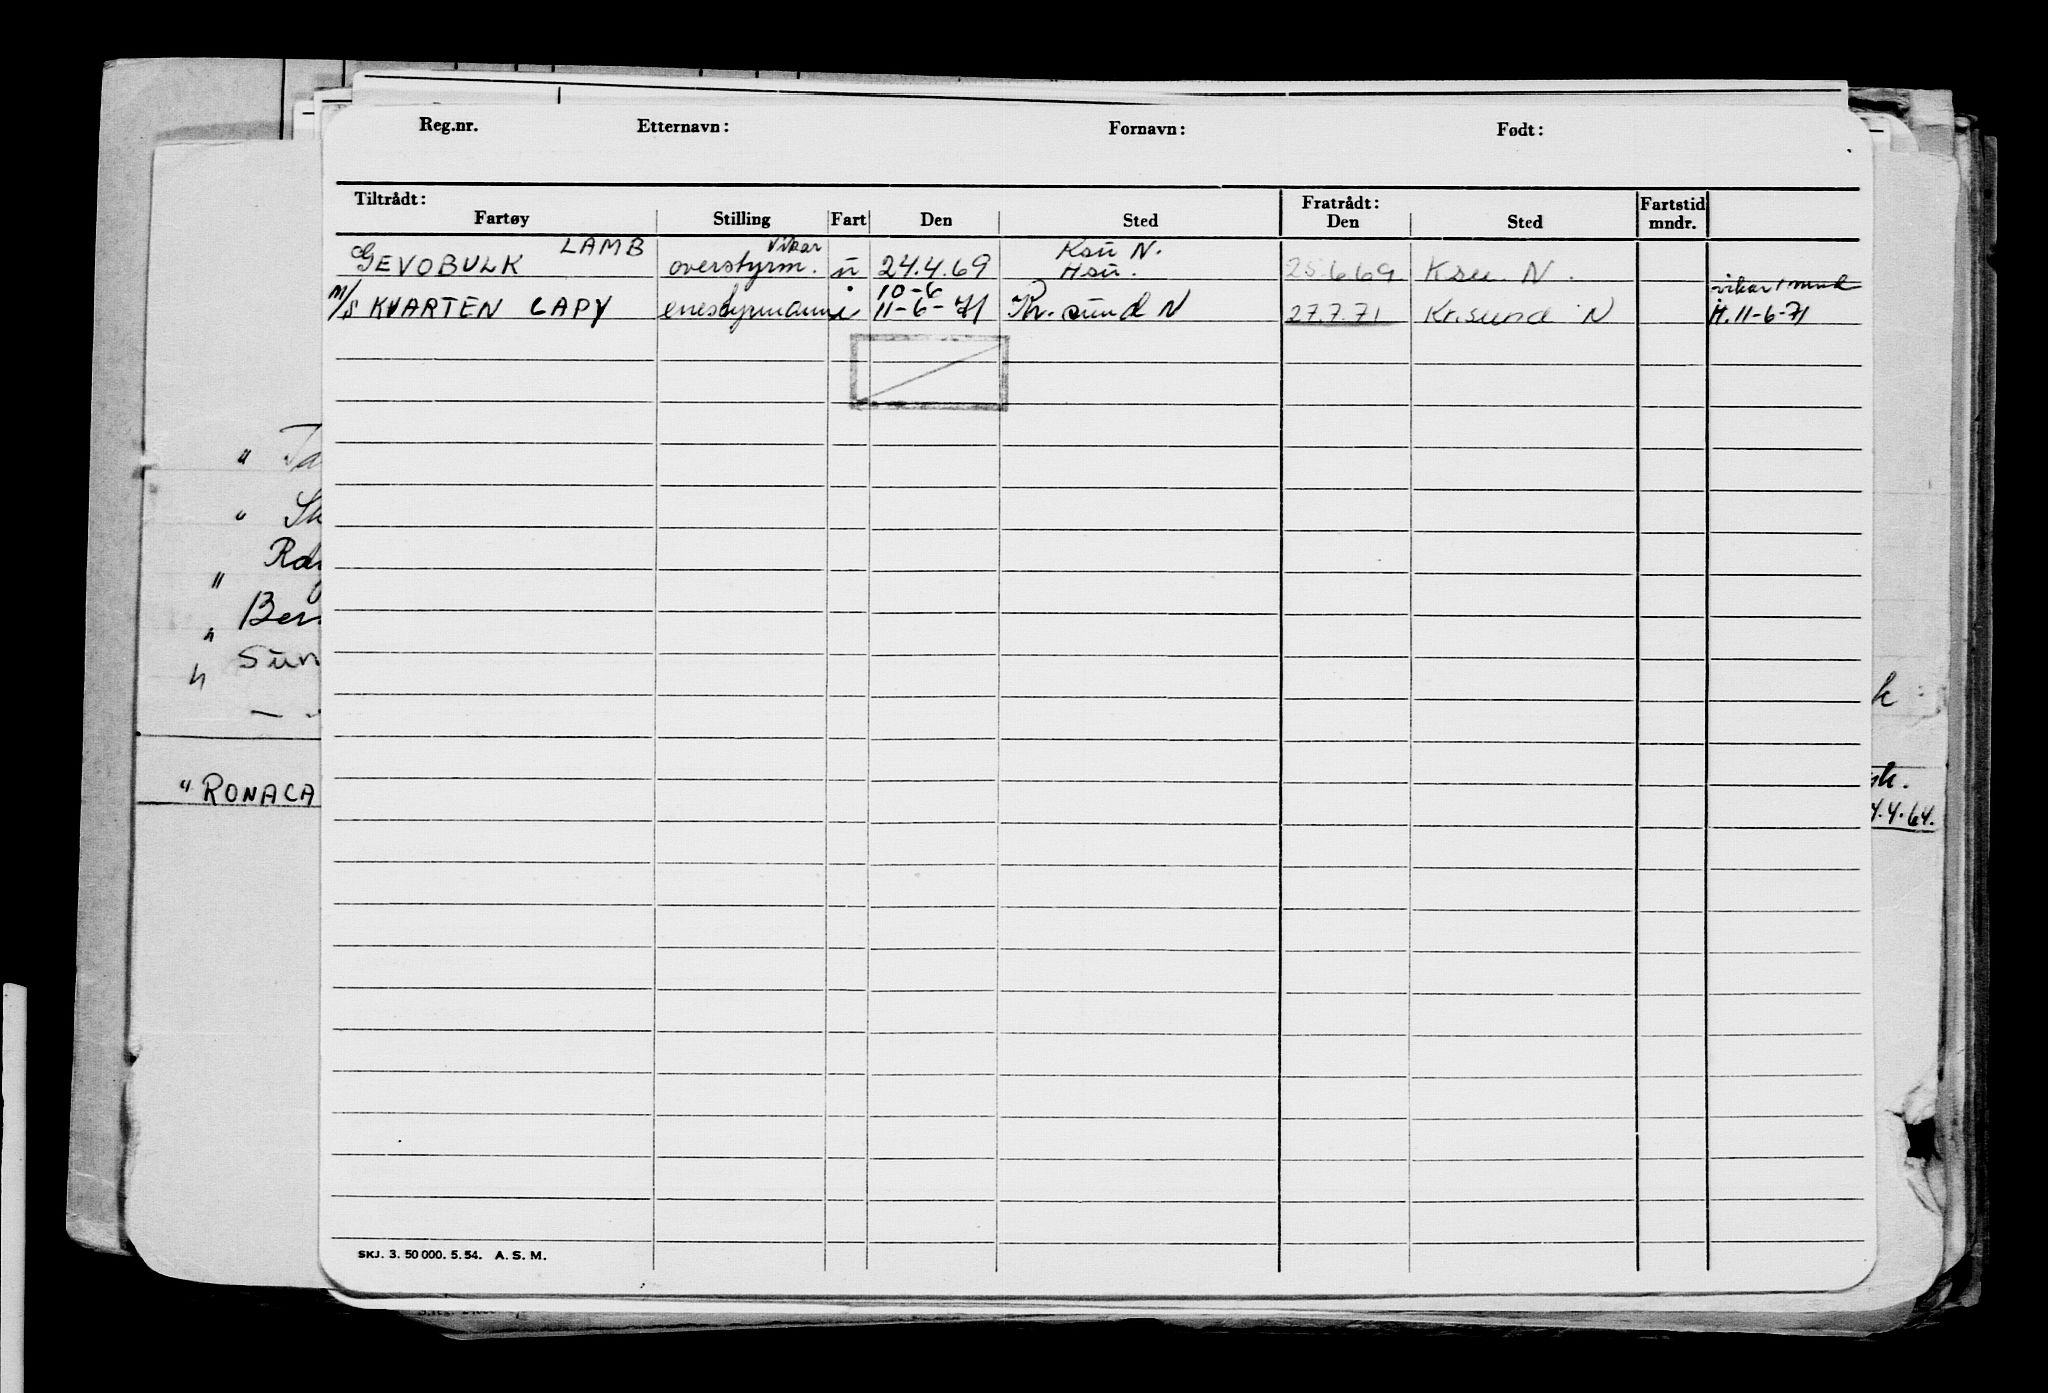 Reg.nr. Etternavn: Fornavn: Født:
Tiltrådt: Fratrådt: Fartstid
Fartøy Stilling Fart Den Sted Den Sted mndr.
LAMB vikar Ksu N.
GEVOBULK overstyrm. u 24.4.69 Hsu. 25.6.69 Ksu. N.
10-6 vikar 1 mnd
M/S KVARTEN LAPY enestyrmann i 11-6-71 Kr. sund N 27.7.71 Kr.sund N H. 11-6-71
" Ta
" Sk
" Ra
" Ber
" Sun
k
" RONACA
4.4.64.
SKJ. 3. 50 000. 5. 54. A. S. M.